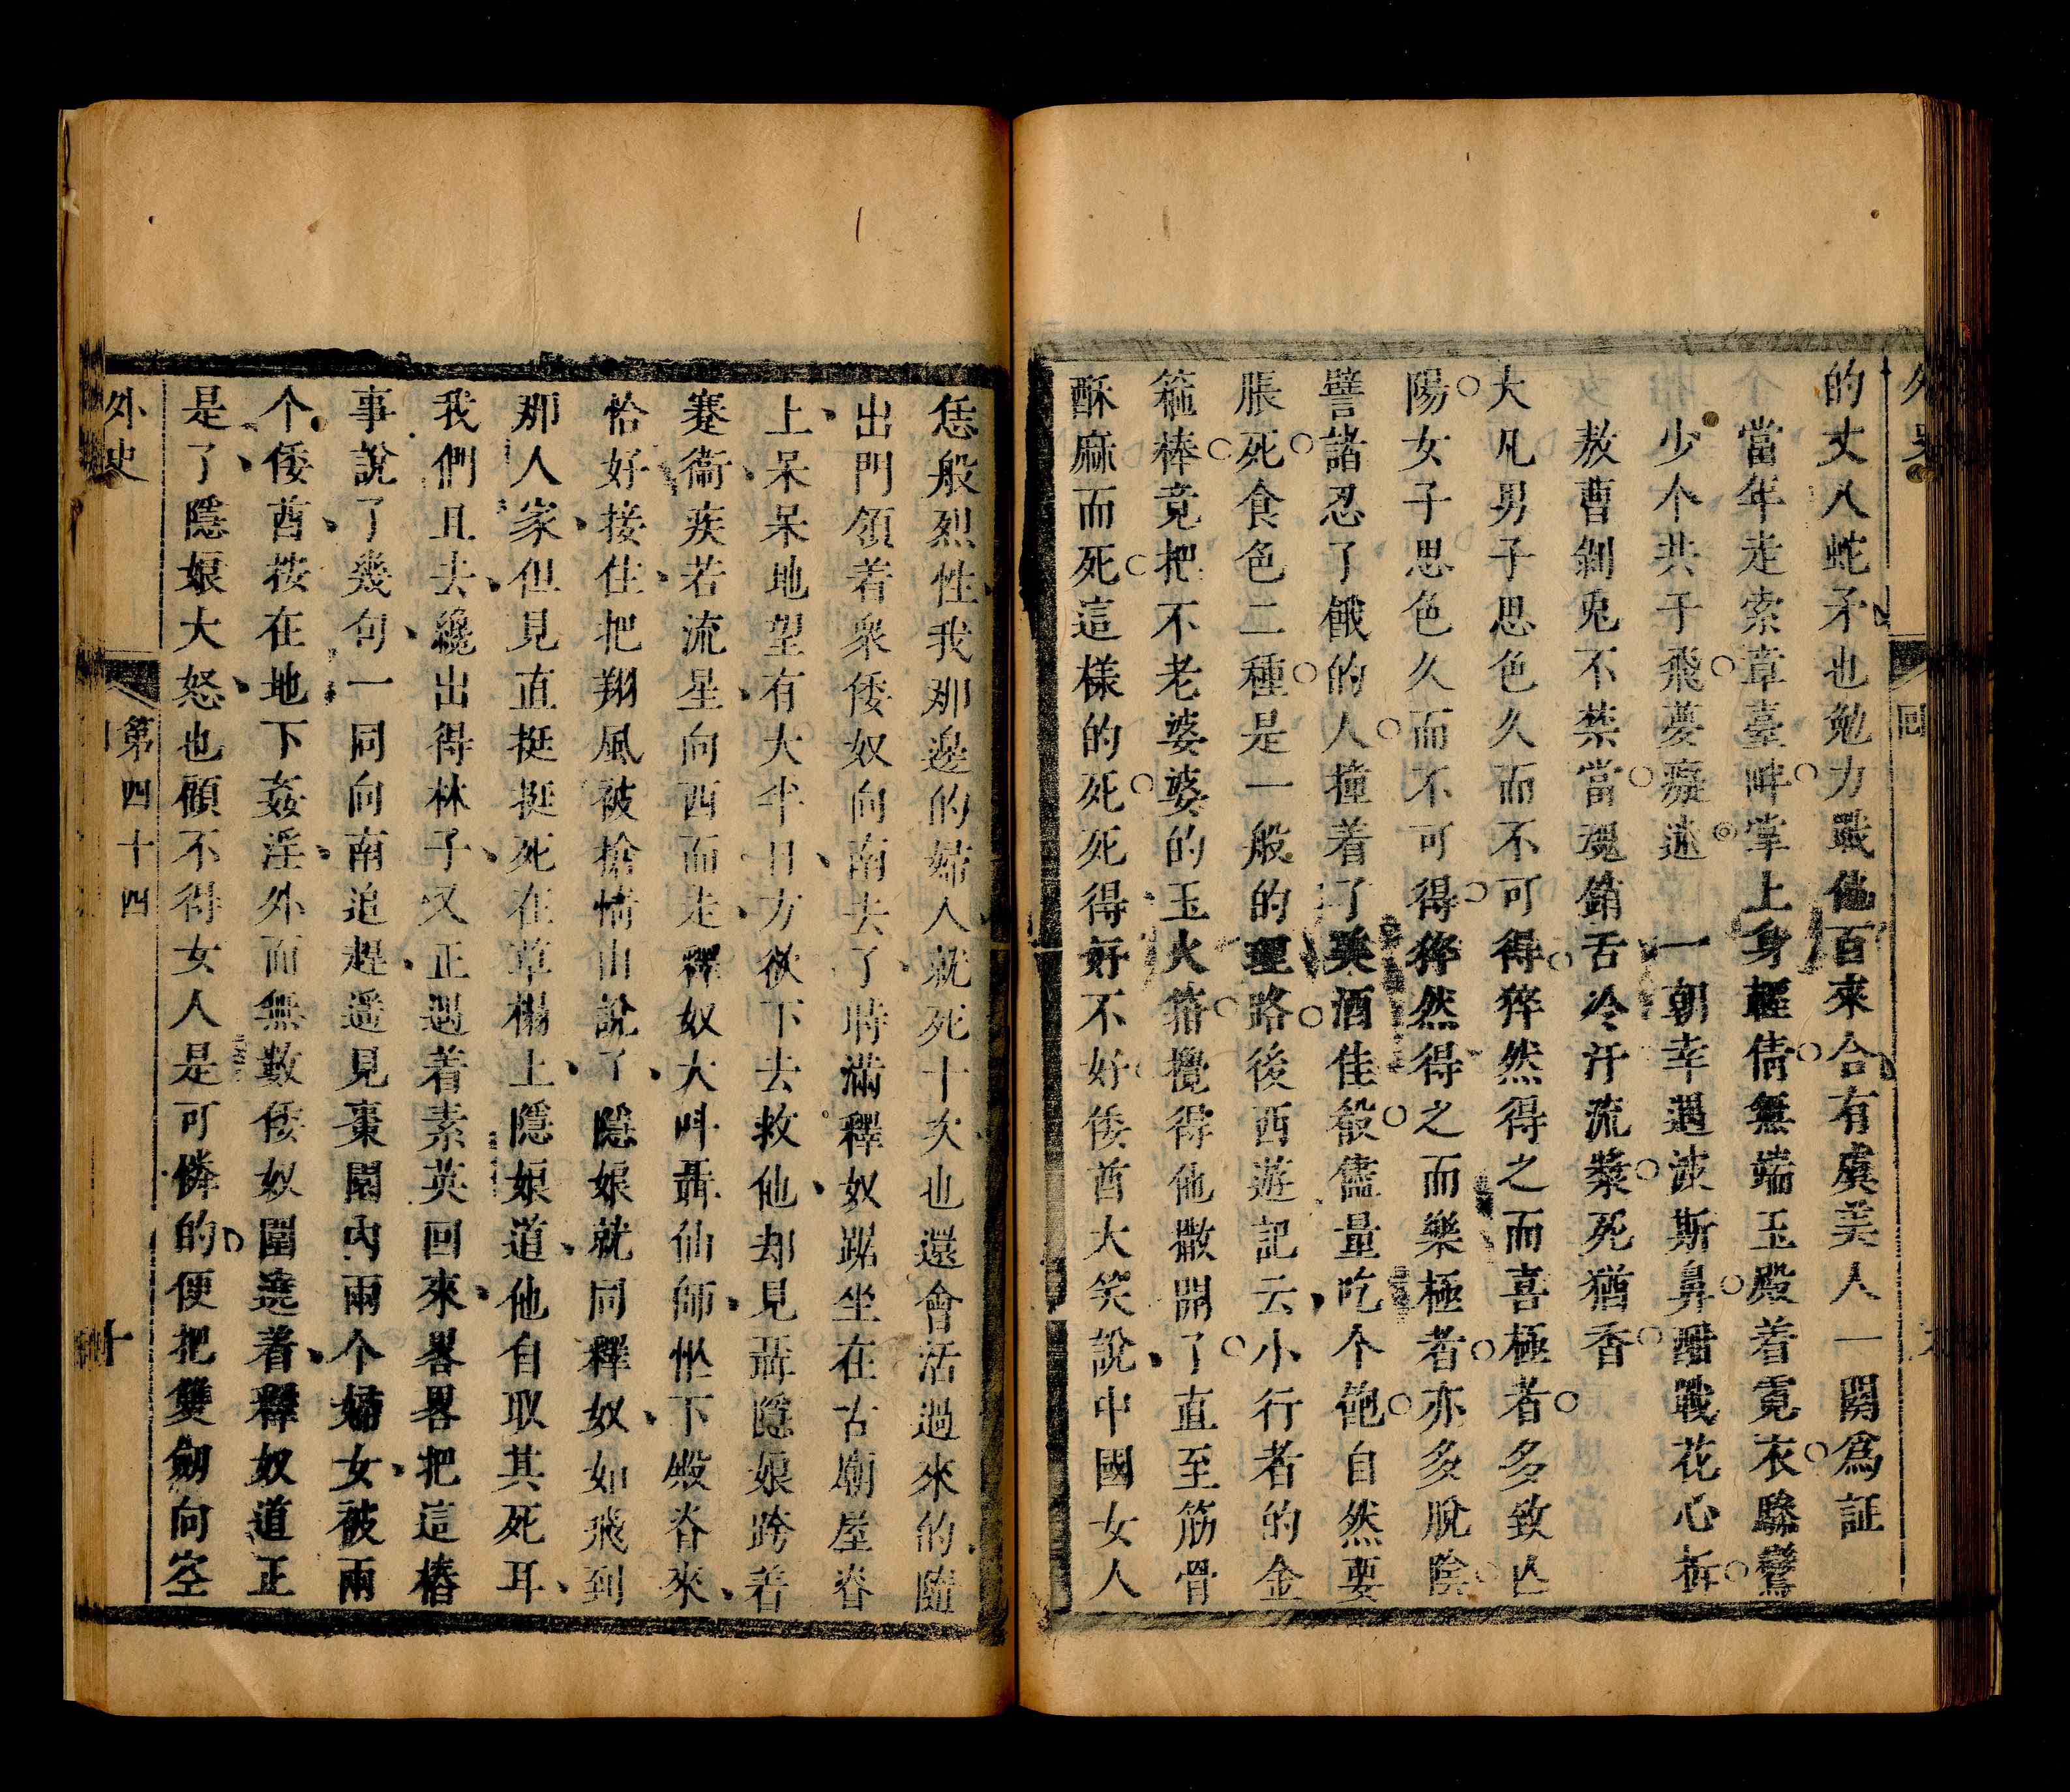 外史
回
的丈八蛇矛也勉力戰他百來合有虞美人一闋爲証
當年走索章臺畔掌上身輕倩無端玉殿着霓衣驂鸞
少个共于飛夢癡迷 一朝幸遇波斯鼻酣戰花心拆
敖曹剝兎不禁當魂銷舌冷汗流漿死猶香
大凡男子思色久而不可得猝然得之而喜極者多致亾
陽女子思色久而不可得猝然得之而樂極者亦多脫陰
譬諸忍了餓的人撞着了美酒佳殽儘量吃个飽自然要
脹死食色二種是一般的理路後西遊記云小行者的金
箍棒竟把不老婆婆的玉火箝攪得他撒開了直至筋骨
酥麻而死這樣的死死得好不好倭酋大笑說中國女人
恁般烈性我那邊的婦人就死十次也還會活過來的隨
出門領着衆倭奴向南去了時滿釋奴踞坐在古廟屋脊
上呆呆地望有大半日方欲下去救他却見聶隱娘跨着
蹇衞疾若流星向西而走釋奴大呌聶仙師慫下殿脊來
恰好接住把翔風被搶情由說了隱娘就同釋奴如飛到
那人家但見直挺挺死在草榻上隱娘道他自取其死耳
我們且去纔出得林子又正遇着素英回來畧畧把這樁
事說了幾句一同向南追趕遥見棗園內兩个婦女被兩
个倭酋按在地下姦淫外而無數倭奴圍遶着釋奴道正
是了隱娘大怒也顧不得女人是可憐的便把雙劒向空
外史
第四十四
十